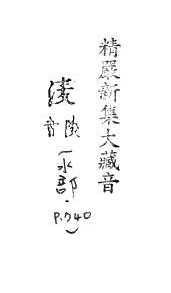 精嚴新集大藏音
(水部.P.740)